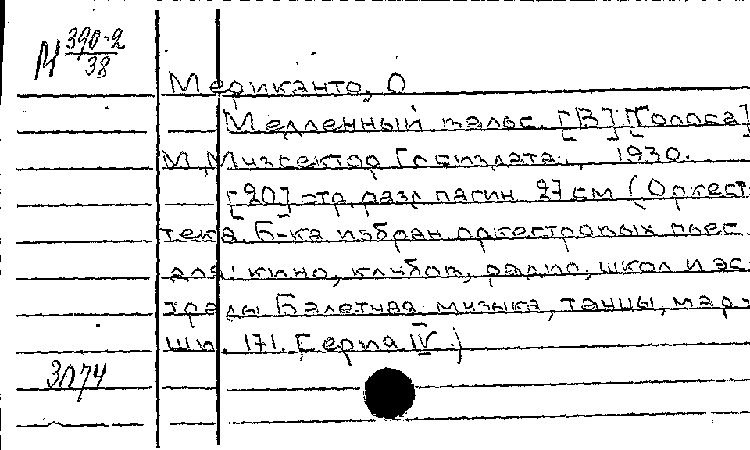 М 390-2
38
Мериканто, О
Медленный вальс. [В] [Голоса]
М., Музсектор Госиздата, 1930.
[20] стр. разд. пагин. 27 см (Оркест-
тека. Б-ка избран. оркестровых пьес
для: кино, клубов, радио, школ и эс-
трады Балетная музыка, танцы, мар-
ши. 171. Серия IV.)
3074